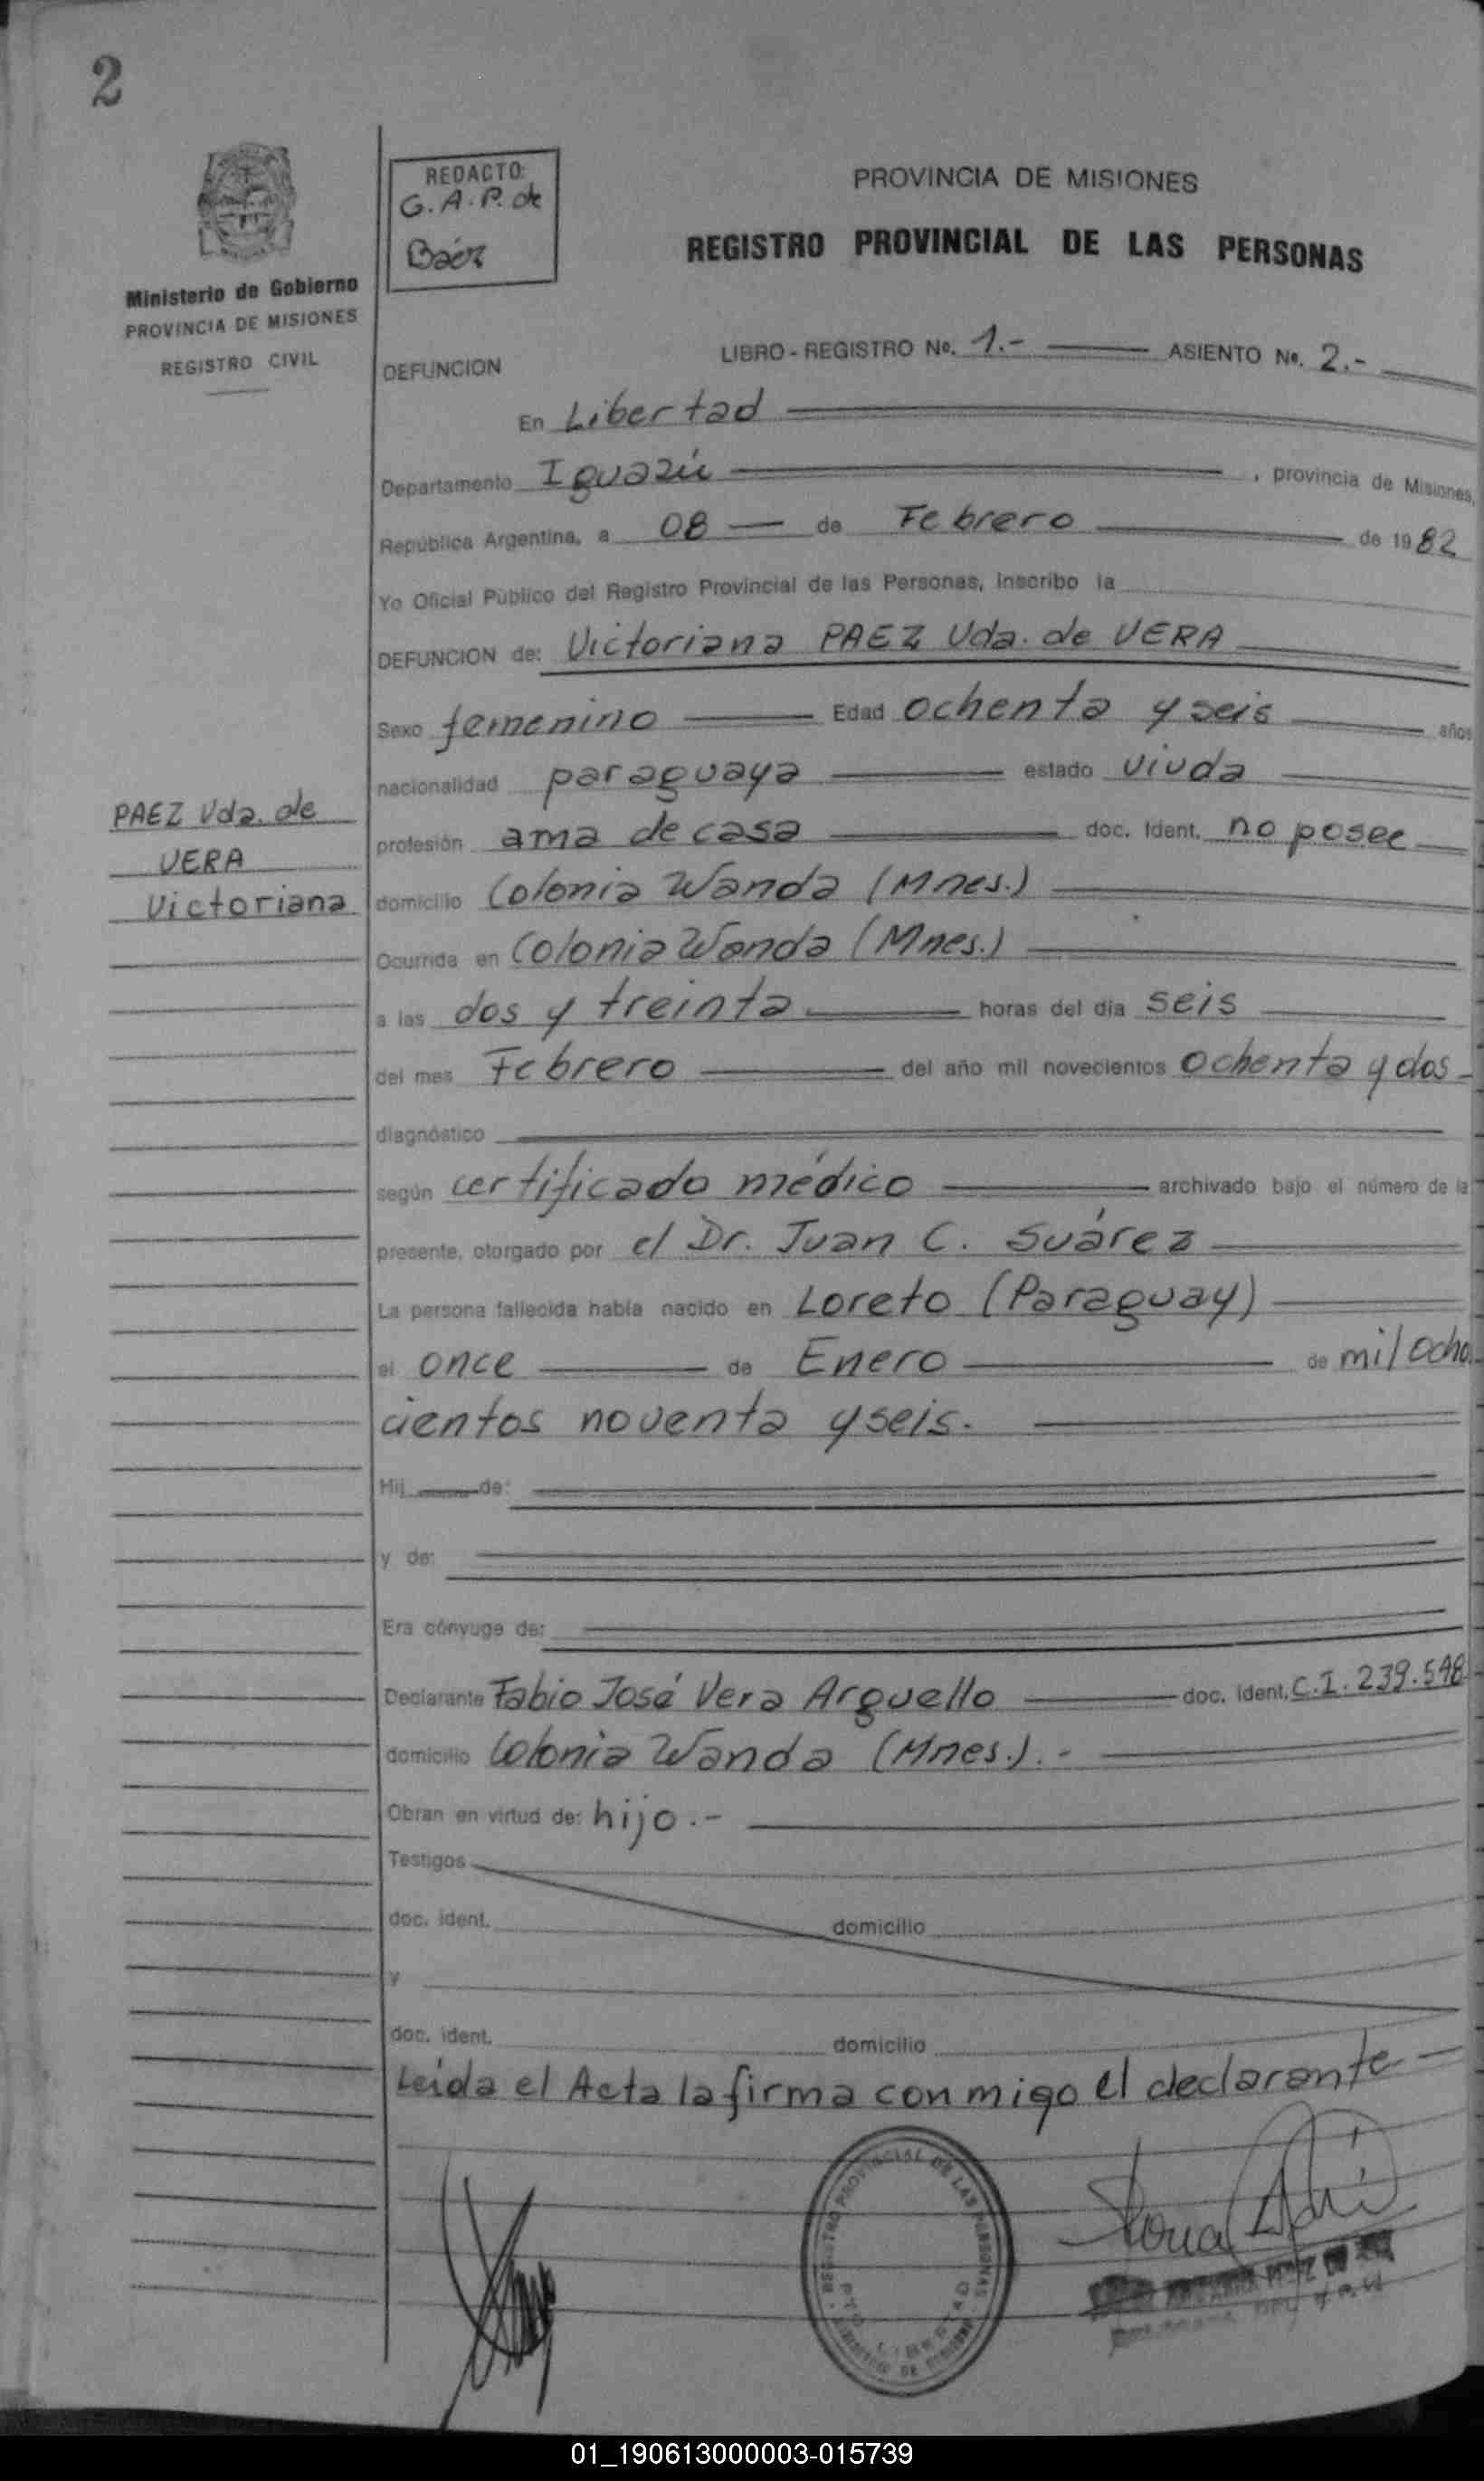 2
REDACTO:
G. A. P. de
Báez
Ministerio de Gobierno
PROVINCIA DE MISIONES
REGISTRO CIVIL
PROVINCIA DE MISIONES
REGISTRO PROVINCIAL DE LAS PERSONAS
DEFUNCION LIBRO - REGISTRO No. 1.- ASIENTO No. 2.-
En Libertad
Departamento Iguazú , provincia de Misiones,
República Argentina, a 08 de Febrero de 1982
Yo Oficial Público del Registro Provincial de las Personas, inscribo la
DEFUNCION de: Victoriana PAEZ Vda. de VERA
Sexo femenino Edad ochenta y seis años
nacionalidad paraguaya estado viuda
PAEZ Vda. de
VERA
Victoriana
profesión ama de casa doc. Ident. no posee
domicilio Colonia Wanda (Mnes.)
Ocurrida en Colonia Wanda (Mnes.)
a las dos y treinta horas del día seis
del mes Febrero del año mil novecientos ochenta y dos
diagnóstico
según certificado médico archivado bajo el número de la
presente, otorgado por el Dr. Juan C. Suárez
La persona fallecida había nacido en Loreto (Paraguay)
el once de Enero de mil ocho
cientos noventa y seis.
Hij de:
y de:
Era cónyuge de:
Declarante Fabio José Vera Arguello doc. ident. C.I. 239.598
domicilio Colonia Wanda (Mnes.).-
Obran en virtud de: hijo.-
Testigos
doc. ident. domicilio
y
doc. ident. domicilio
Leída el Acta la firma conmigo el declarante
REGISTRO PROVINCIAL DE LAS PERSONAS
01_190613000003-015739